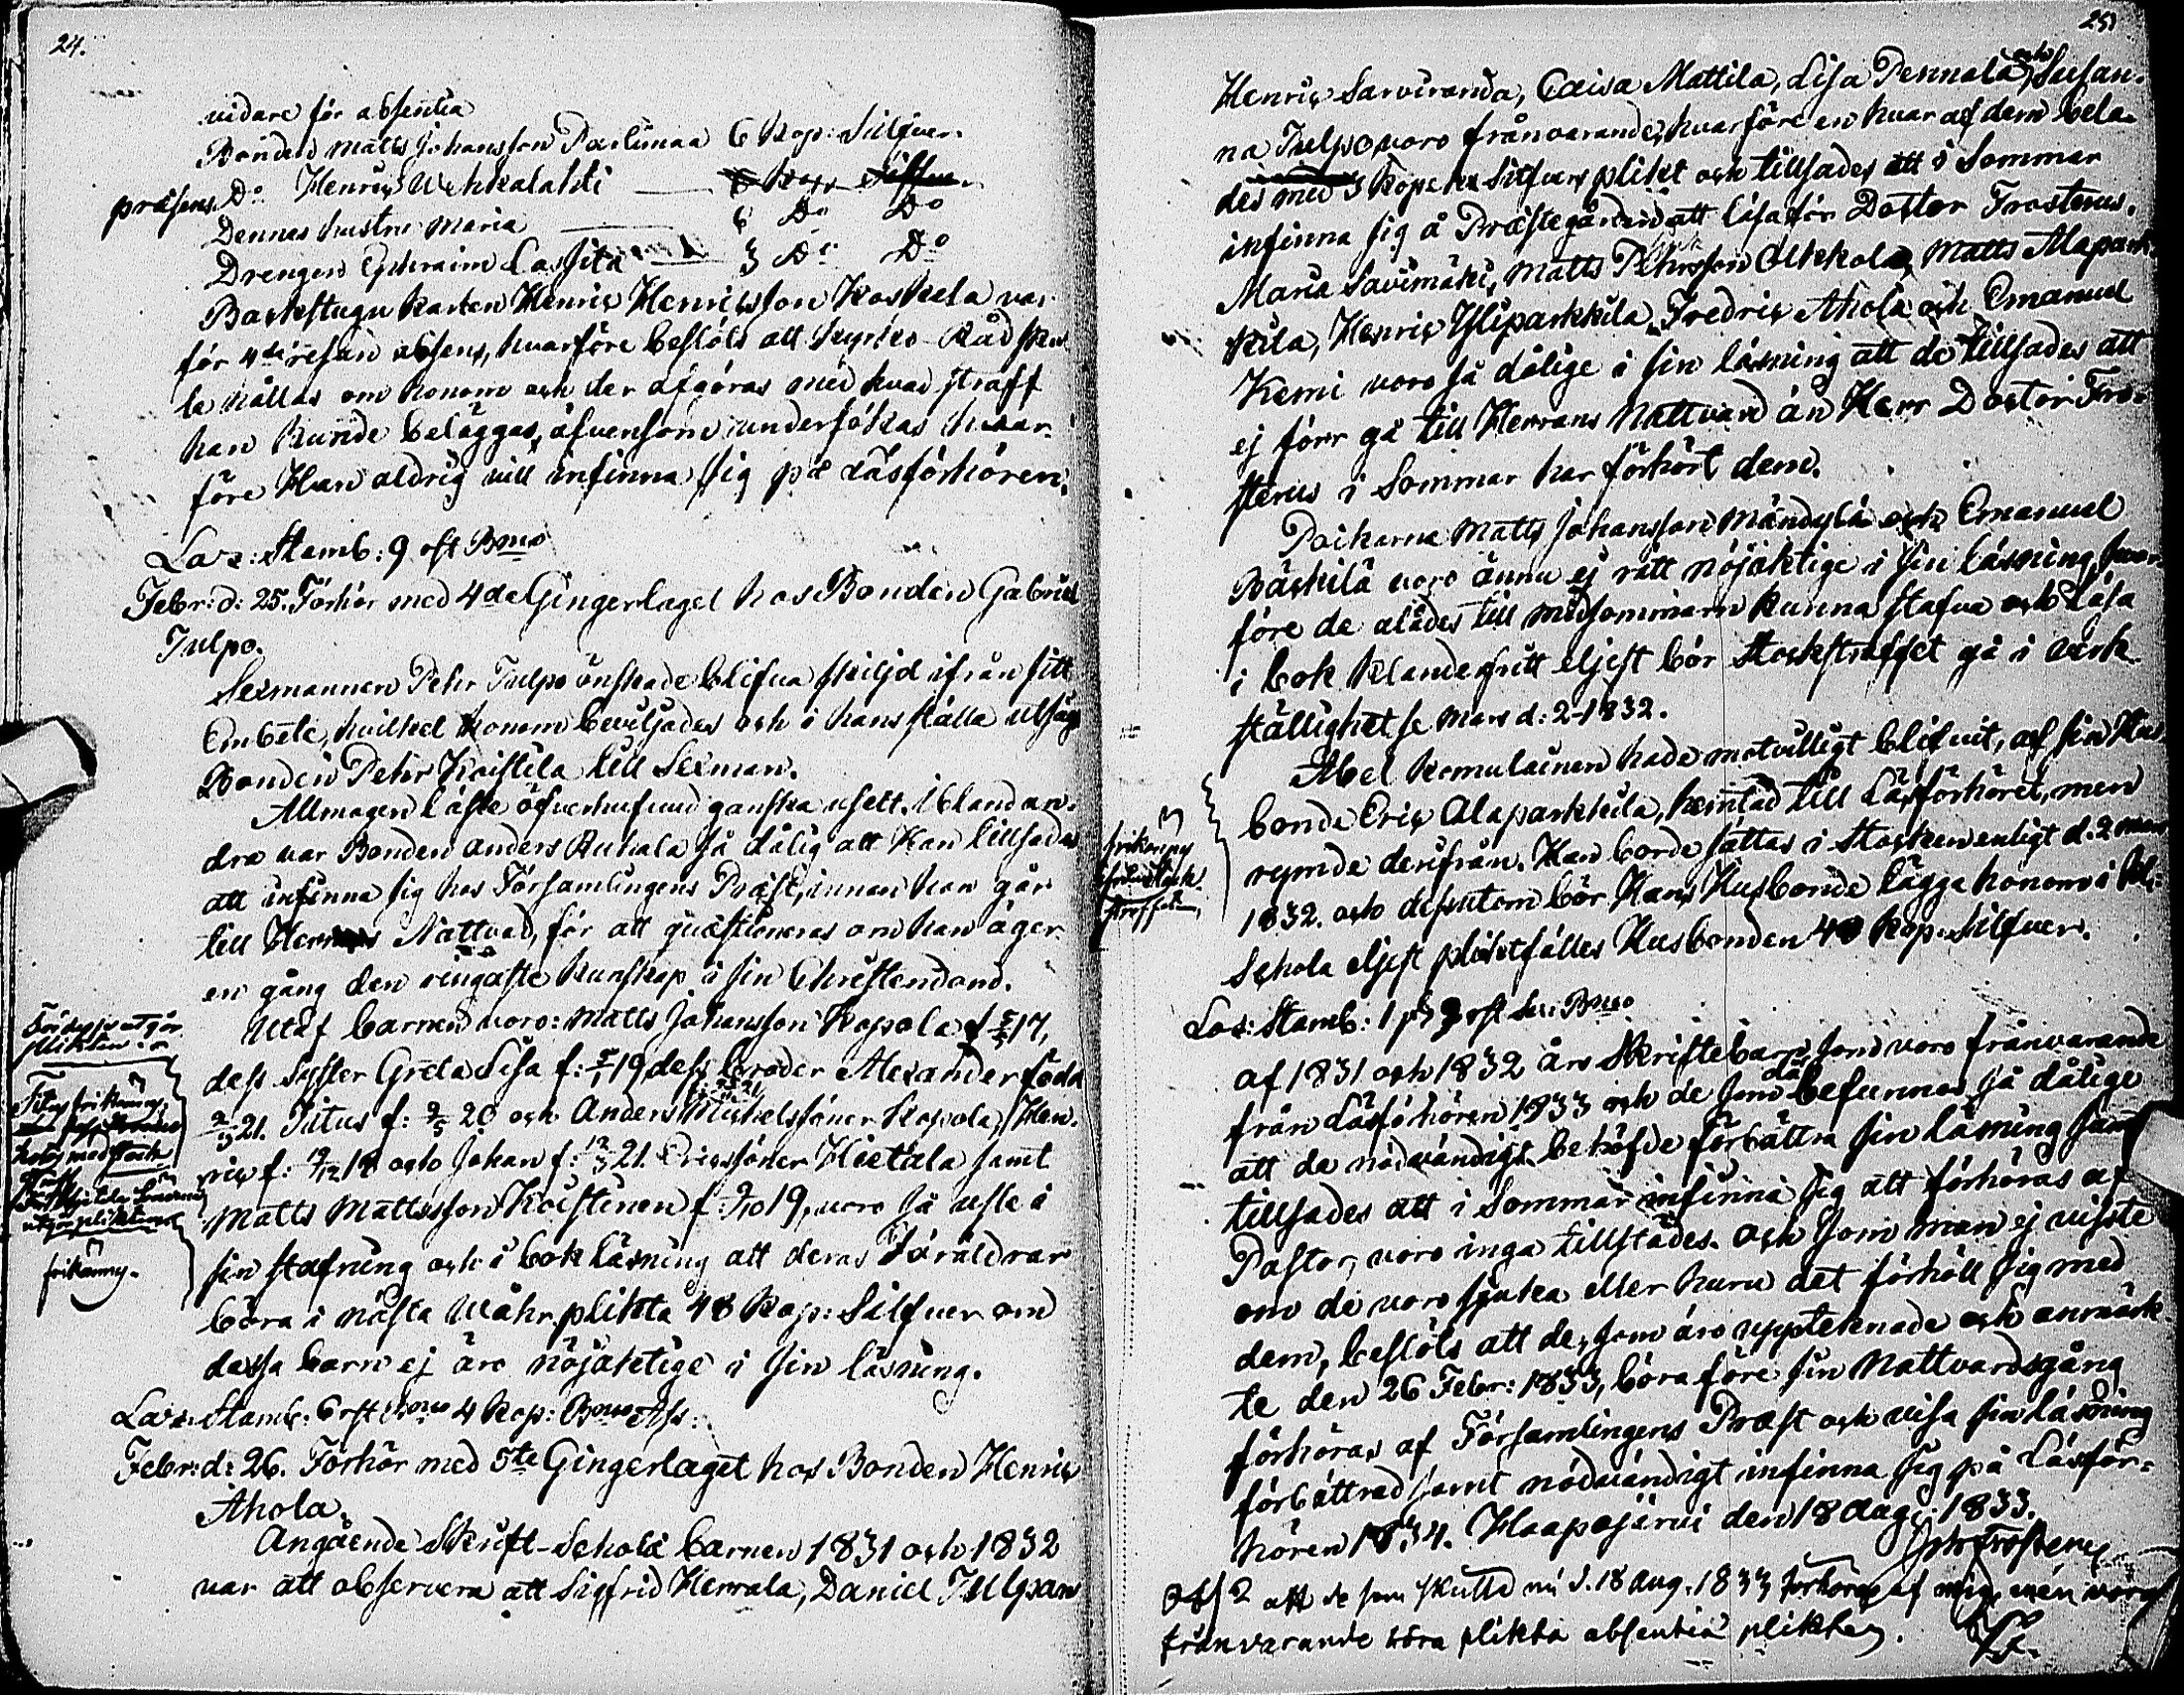 24.
vidare för absentia
Bonden Matts Johansson Parlimaa 6 Kop: Silfver.
præsens. Do Henric Wehkalahti 6 Kop Silfver.
Dennes hustru Maria 6 Do Do
Drengen Ephraim Lassila 3 Do Do
Backstugu karlen Henric Henricsson Koskela var
för 4de resan absens, hvarföre beslöts att Kyrko-Råd skul
le hållas om honom och der afgöras med hvad straff
han kunde beläggas, äfvensom undersökas hvar-
före Han aldrig vill infinna sig på Läsförhören.
Lar: Stamb: 9 rst Bmo
Febr: d: 25. Förhör med 4de Gingerlaget hos Bonden Gabriel
Tulpo.
Sexmannen Pehr Tulpo önskade blifva skiljd ifrån sitt
Embete, hvilket honom beviljades och i hans ställe utsågs
Bonden Pehr Koistila till Sexman.
Allmogen läste öfverhufvud ganska uselt. Ibland an-
dra var Bonden Anders Ruhala så dålig att Han tillsades
att infinna sig hos Församlingens Præst, innan han går
till Herrans Nattvad, för att quæstioneras om han äger
en gång den ringaste kunskap i sin Christendom.
Utaf barnen voro: Matts Johansson Kopola f 17,
dess Syster Greta Lisa f: 19 dess broder Alexander född
21. Titus f: 20 och Anders Michelssöner Kopola, Hen-
ric f: 18 och Johan f: 21. Ericssöner Hietala samt
Matts Mattsson Koistinen f: 19, voro så usle i
sin stafning och i bok läsning att deras Föräldrar
böra i nästa Währ plikta 48 Kop: Silfver om
dessa barn ej äro nöjaktige i sin läsning.
utgör
plikten
Titus frikänns
med stock
utgör plikten
frikänns.
Lar: Stamb: 6 rst 4 Kop: Bmo Ass:
Febr: d: 26. Förhör med 5te Gingerlaget hos Bonden Henric
Ahola.
Angående Skrift-Schole barnen 1831 och 1832
var att observera att Sigfrid Herrala, Daniel Tulpan
25
Henric Sarviranda, Caisa Mattila, Lisa Pennala och Susan-
na Tulpo voro frånvarande, hvarföre en hvar af dem bela-
des med 3 Kopek Silfver plikt och tillsades att i Sommar
infinna sig å Præstegården att läsa för Doctor Frosterus.
Maria Savimäki, Matts Pehrsson Olkkola, Matts Alapark-
kila, Henric Yliparkkila Fredric Ahola och Emanuel
Kemi voro så dålige i sin läsning att de tillsades att
ej förr gå till Herrans Nattvard än Herr Doctor Fro-
sterus i Sommar har förhört dem.
Poikarne Matts Johansson Mändylä och Emanuel
Bäckilä voro ännu ej rätt nöjaktige i sin läsning, hvar-
före de ålades till midsommarn kunna stafva och läsa
i bok klanderfritt eljest bör Stockstraffet gå i verk
ställighet se Mars d: 2-1832.
Abel Komulainen hade motvilligt blifvit, af sin Hus-
bonde Eric Alaparkkila, hemtad till Läsförhöret, men
rymde derifrån. Han borde sättas i Stocken enligt d: 2 Mars
1832. och dessutom bör Hans Husbonde lägga honom i
Schola eljest pliktfälles Husbonden 48 Kop. Silfver.
frikännes
från stock
straffet
Lar: Stamb: 1 p 3 rst Sv: Bmo
af 1831 och 1832 års Skriftebarn, som voro frånvarande
från Läsförhören 1833 och de som då befunnos så dålige
att de nödvändigt behöfde förbättra sin läsning samt
tillsades att i Sommar infinna sig att förhöras af
Pastor, voro inga tillstädes. och som man ej visste
om de voro sjuka eller huru det förhöll sig med
dem, beslöts att de, som äro uppteknade och anmärk-
te den 26 Febr: 1833, böra före sin Nattvardsgång
förhöras af Församlingens Præst och visa sin läsning
förbättrad samt nödvändigt infinna sig på Läsför-
hören 1834. Haapajärvi den 18 Aug: 1833.
Joh: Frosterus
Obs? att de som skulle nu d. 18 Aug. 1833 förhöras af mig, men voro
frånvarande böra plikta absentiæ plikten. J.F.